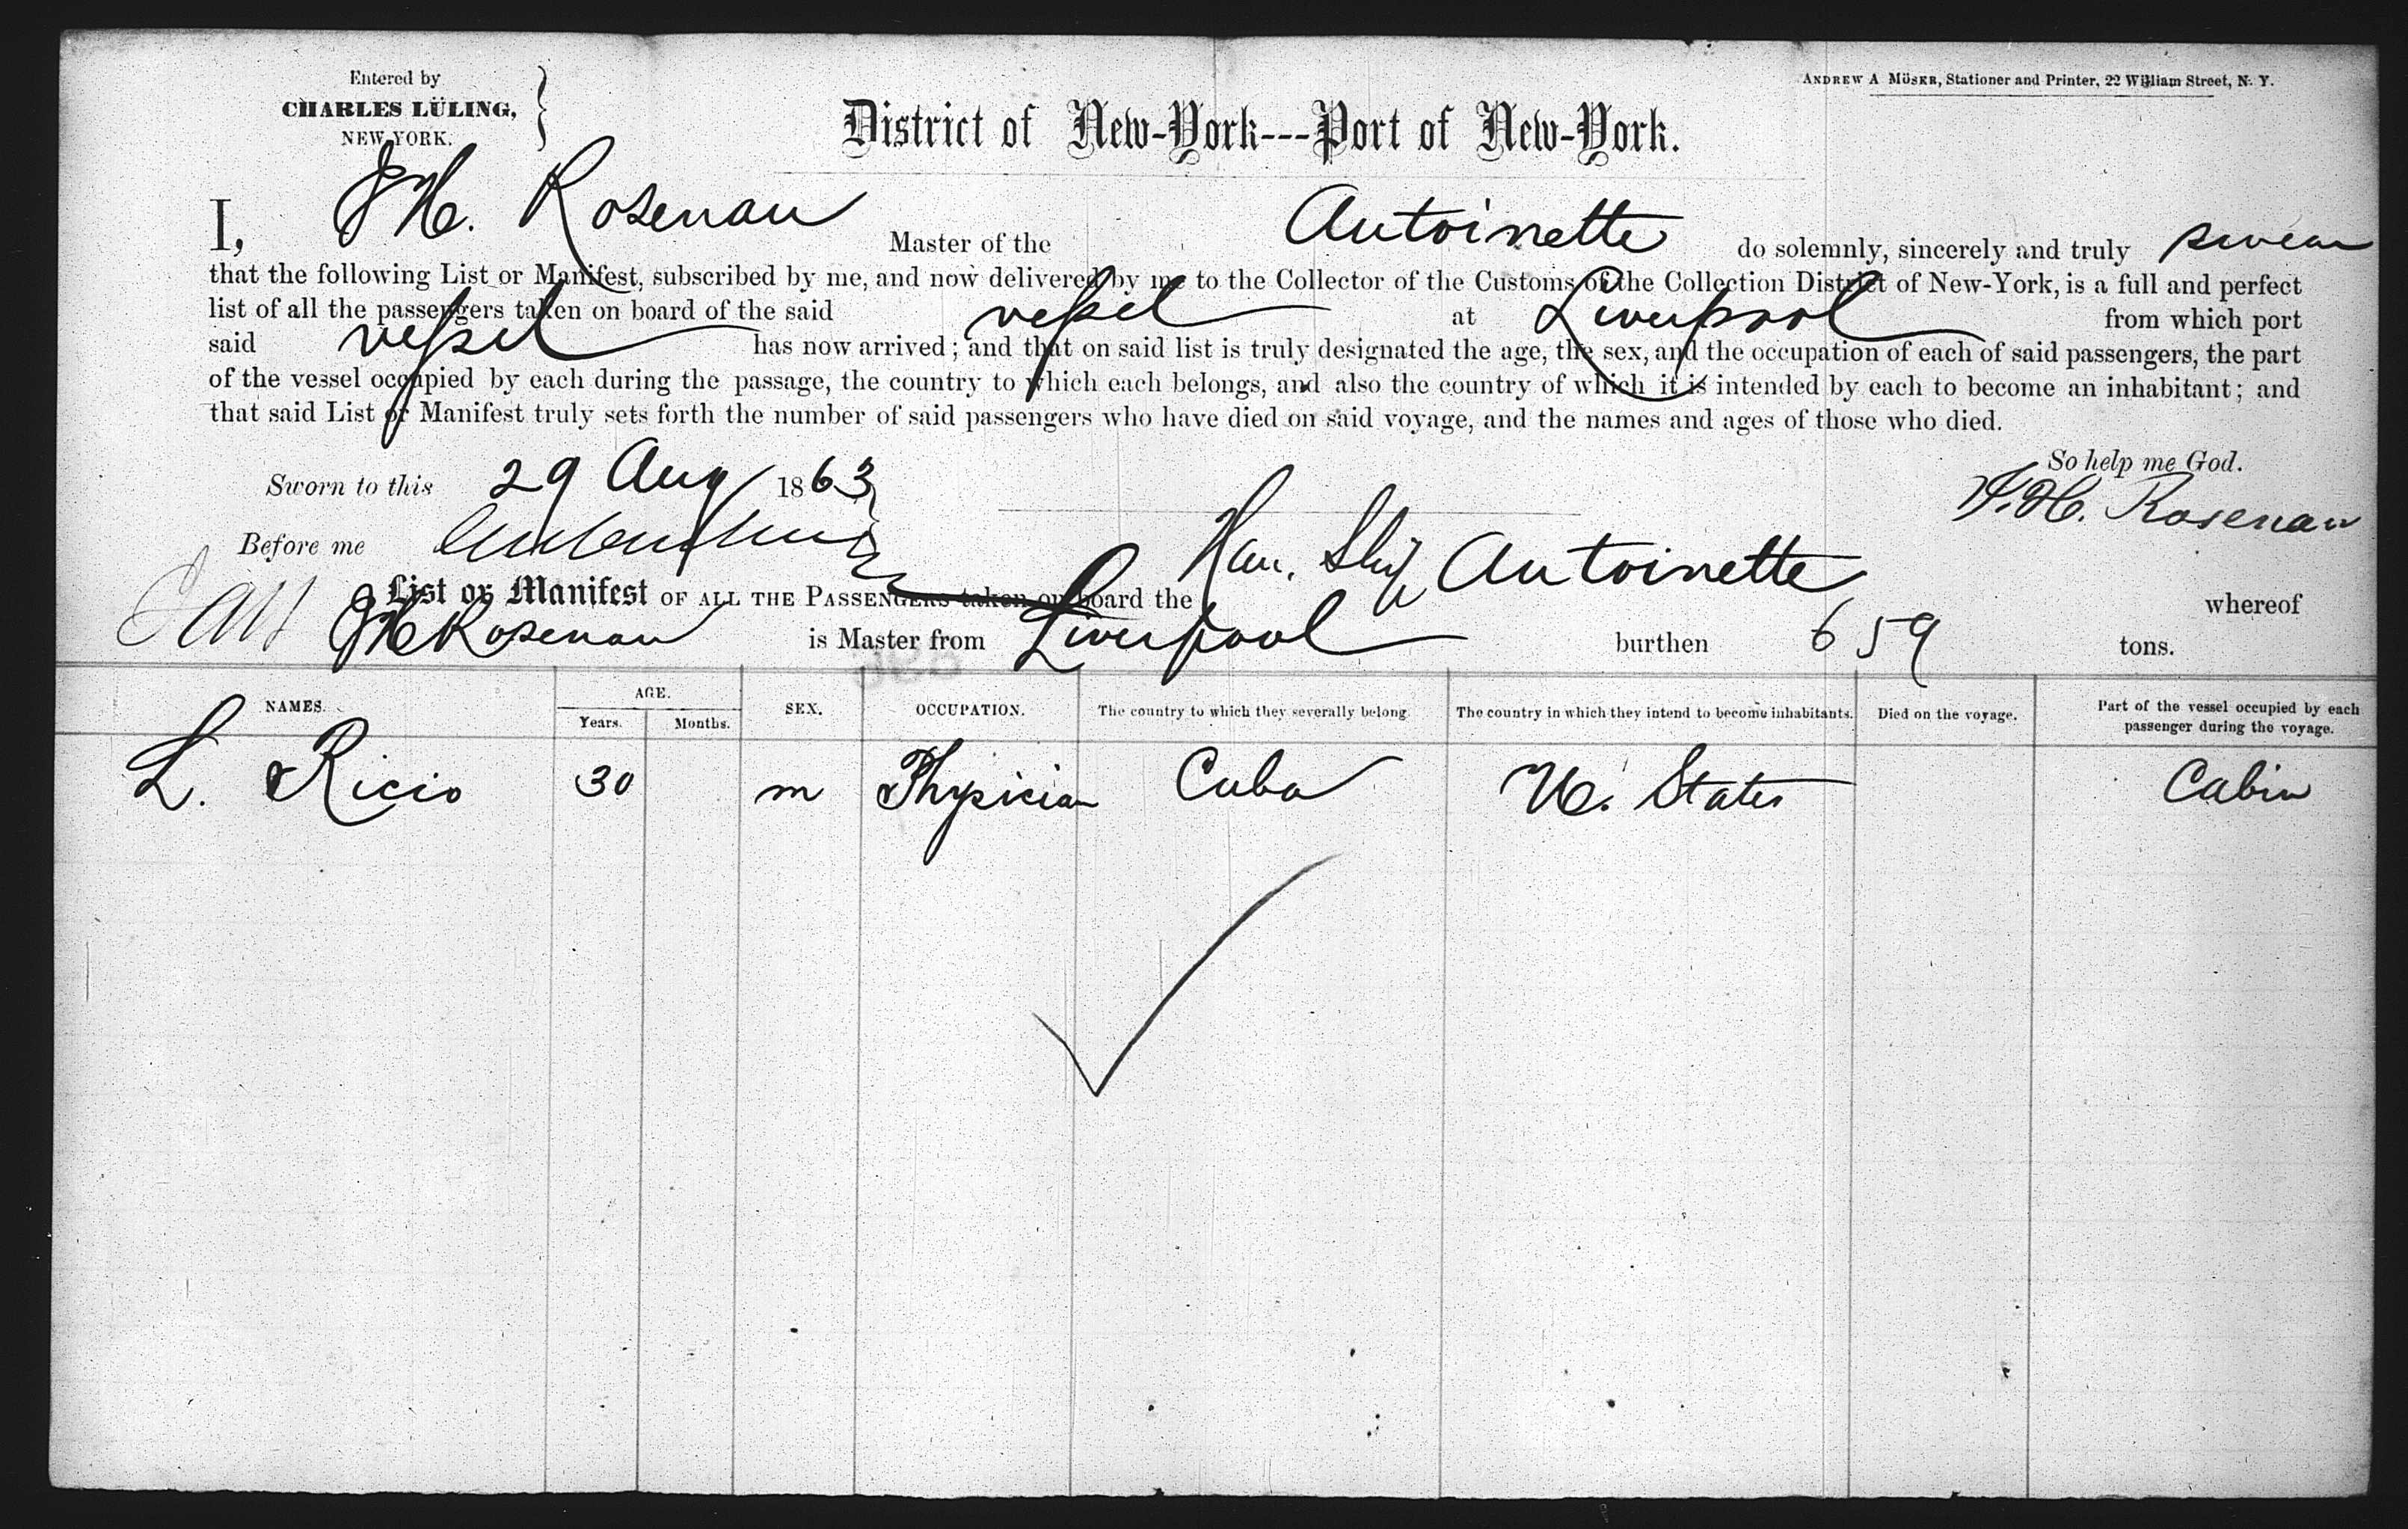 Entered by
CHARLES LÜLING,
NEW YORK.
ANDREW A MÜSER, Stationer and Printer, 22 William Street, N. Y.
District of New-York---Port of New-York.
I, J H. Rosenau Master of the Antoinette do solemnly, sincerely and truly swear
that the following List or Manifest, subscribed by me, and now delivered by me to the Collector of the Customs of the Collection District of New-York, is a full and perfect
list of all the passengers taken on board of the said vessel at Liverpool from which port
said vessel has now arrived; and that on said list is truly designated the age, the sex, and the occupation of each of said passengers, the part
of the vessel occupied by each during the passage, the country to which each belongs, and also the country of which it is intended by each to become an inhabitant; and
that said List or Manifest truly sets forth the number of said passengers who have died on said voyage, and the names and ages of those who died.
So help me God.
Sworn to this 29 Aug 1863
J. H. Rosenau
Before me
List or Manifest OF ALL THE PASSENGERS taken on board the Han. Ship Antoinette whereof
J H Rosenau is Master from Liverpool burthen 659 tons.
NAMES. AGE. Years. Months. SEX. OCCUPATION. The country to which they severally belong. The country in which they intend to become inhabitants. Died on the voyage. Part of the vessel occupied by each passenger during the voyage.
L. Ricio 30 m Physician Cuba U. States Cabin